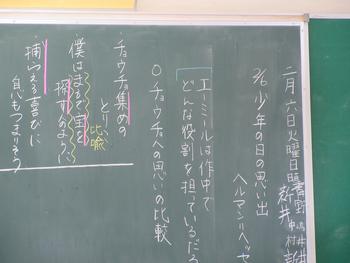 二月六日火曜日
2/6 少年の日の思い出
ヘルマン・ヘッセ
エーミールは作中で
どんな役割を担っているだろ
○チョウチョへの思いの比較
チョウチョ集めの
とりこ
比喩
僕はまるで宝を
探す人のように
捕らえる喜びに
息もつまりそう